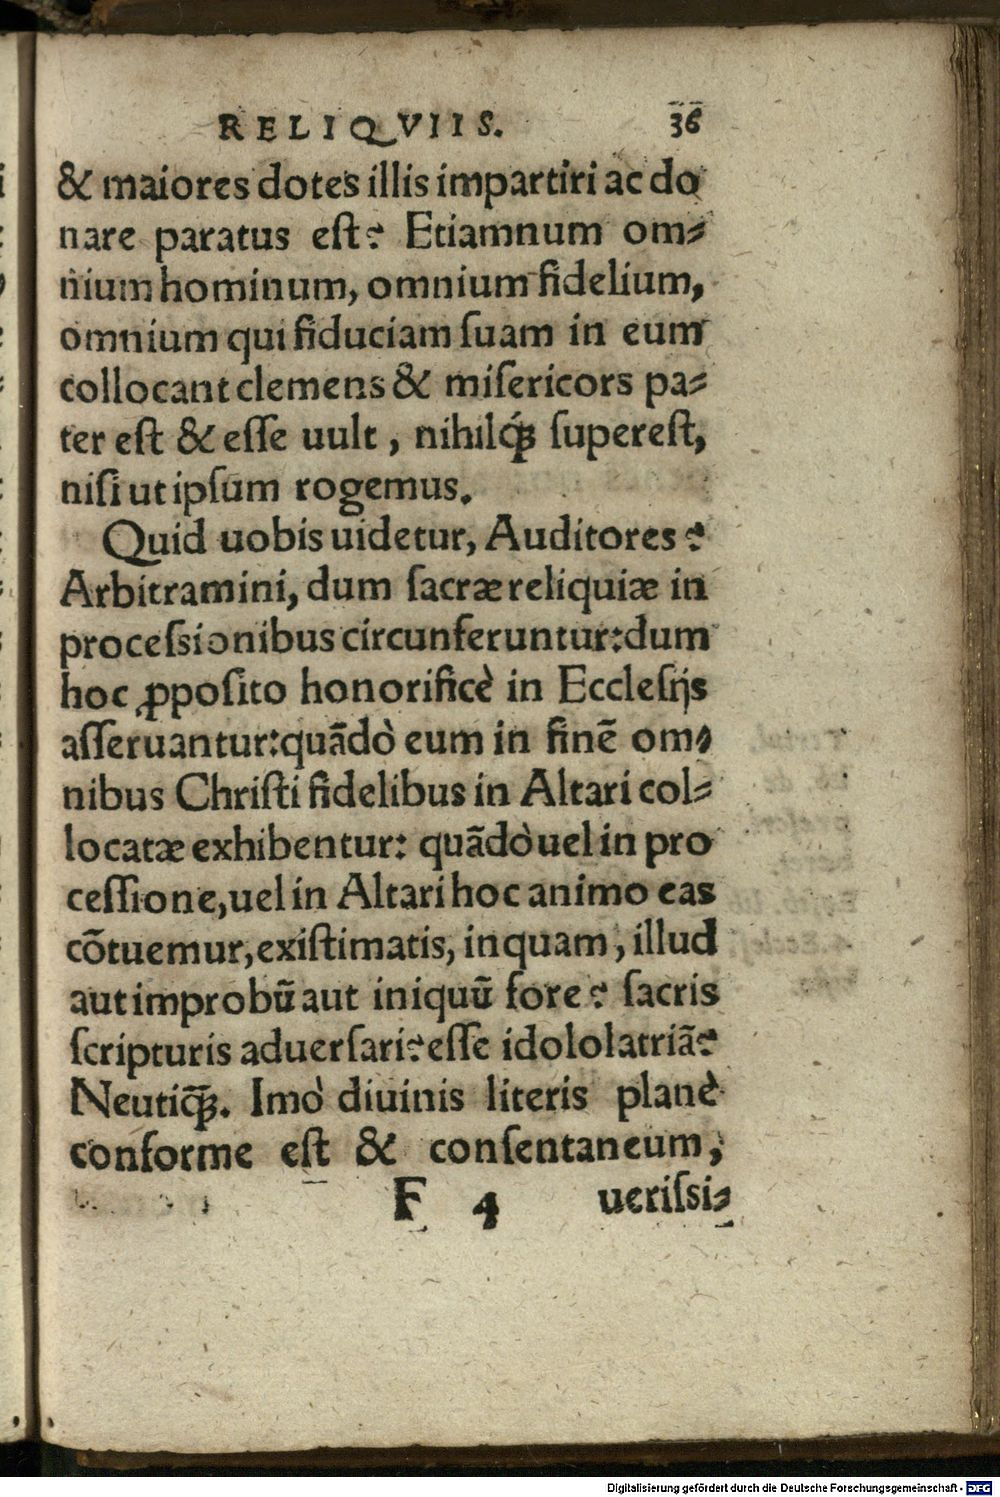 RELIQVIIS. 36
& maiores dotes illis impartiri ac do
nare paratus eſt? Etiamnum om⸗
nium hominum, omnium fidelium,
omnium qui fiduciam ſuam in eum
collocant clemens & miſericors pa⸗
ter eſt & eſſe uult, nihilq́ꝫ ſupereſt,
niſi ut ipſum rogemus.
Quid uobis uidetur, Auditores?
Arbitramini, dum ſacræ reliquiæ in
proceſsionibus circunferuntur: dum
hoc ꝓpoſito honorificè in Eccleſijs
aſſeruantur: quãdò eum in finẽ om⸗
nibus Chriſti fidelibus in Altari col⸗
locatæ exhibentur: quãdò uel in pro
ceſſione, uel in Altari hoc animo eas
cõtuemur, exiſtimatis, inquam, illud
aut improbũ aut iniquũ fore? ſacris
ſcripturis aduerſari? eſſe idololatriã?
Neutiq̃ꝫ. Imò diuinis literis planè
conforme eſt & conſentaneum,
F 4 ueriſsi⸗
Digitalisierung gefördert durch die Deutsche Forschungsgemeinschaft - DFG